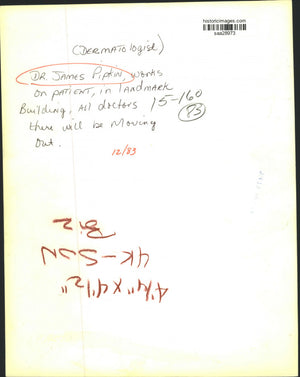 historicimages.com
saa28973
(DERMATologist)
DR. JAMES Pipkin, works
on PATIENT, in landmark
Building, All doctors 15-160
there will be Moving (73)
out.
12/83
Biz
4K-SUN
4¼" x 4½"